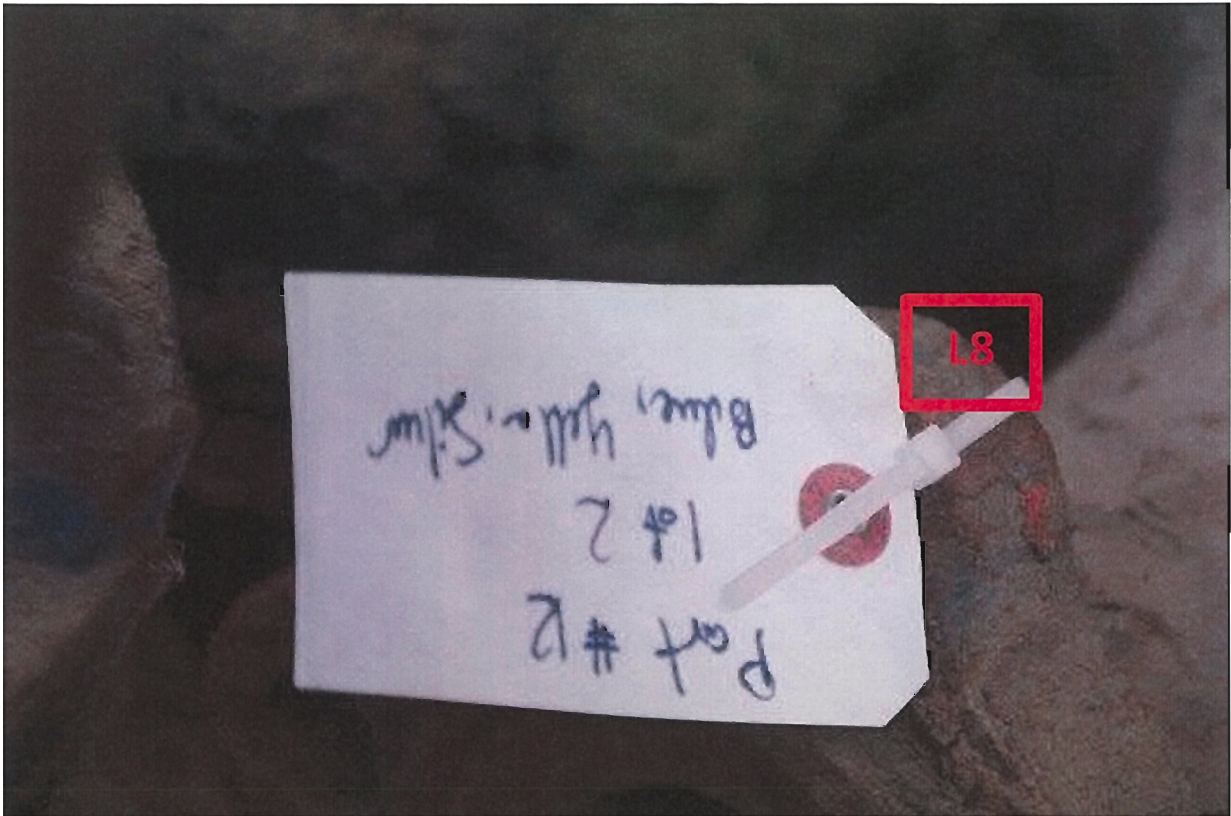 L8
Part #12
1 of 2
Blue, Yellow, Silver